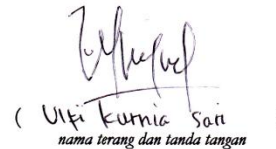 ( Ulfi Kurnia Sari
nama terang dan tanda tangan